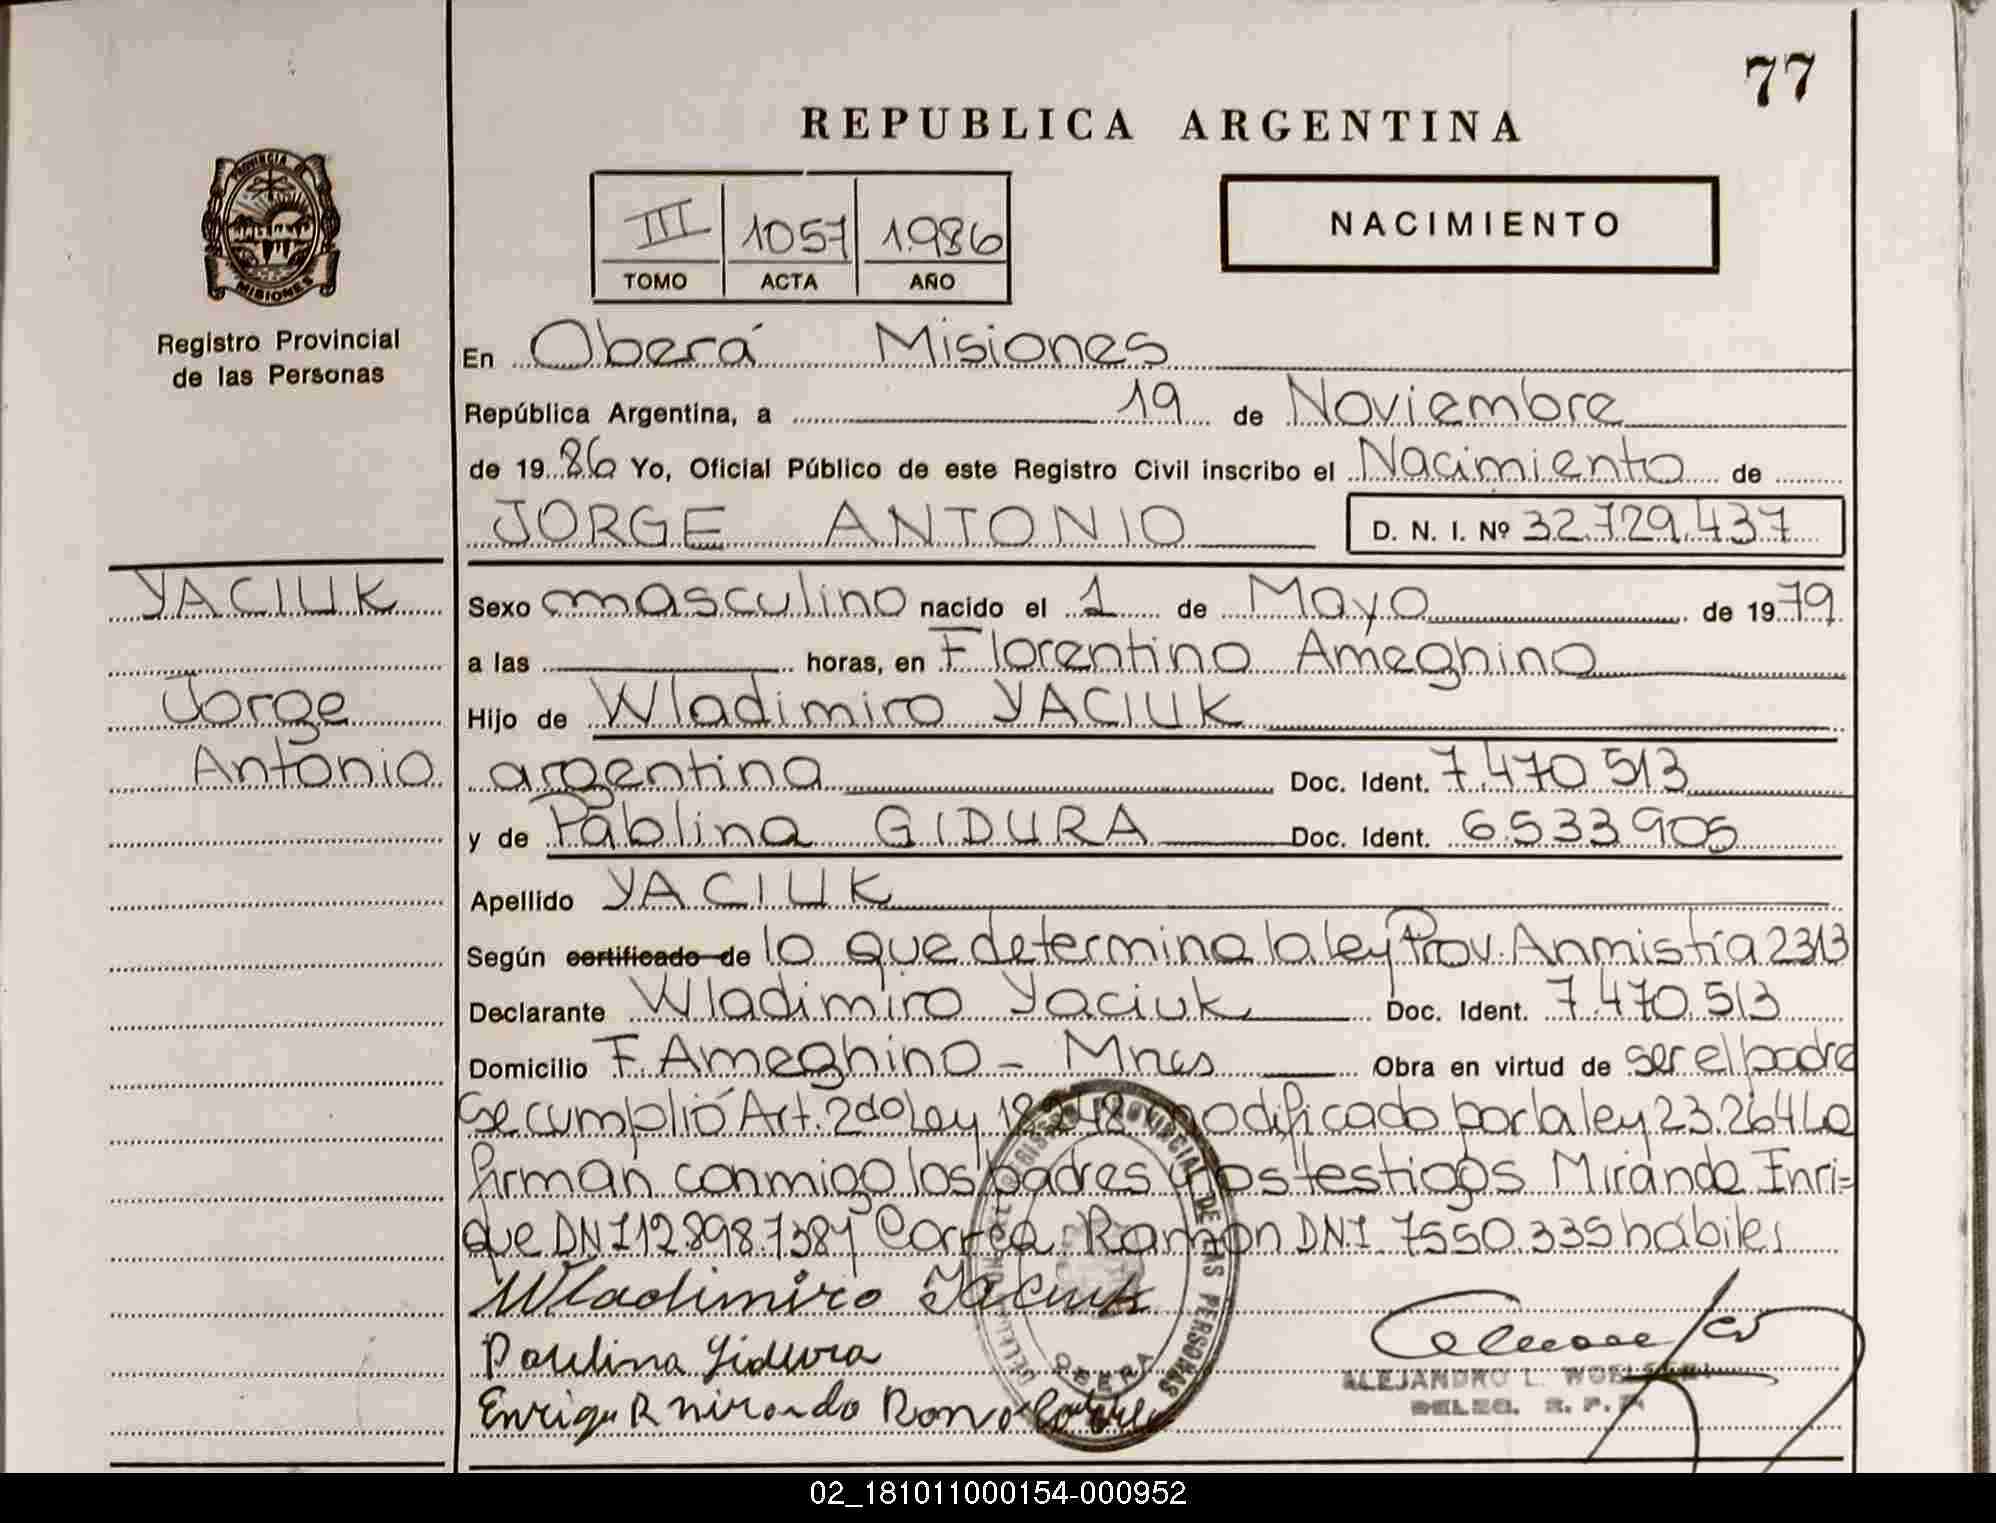 77
REPUBLICA ARGENTINA
PROVINCIA DE
MISIONES
Registro Provincial
de las Personas
III 1057 1986
TOMO ACTA AÑO
NACIMIENTO
En Oberá Misiones
República Argentina, a 19 de Noviembre
de 1986 Yo, Oficial Público de este Registro Civil inscribo el Nacimiento de
JORGE ANTONIO D. N. I. Nº 32.729.437
YACIUK
Jorge
Antonio
Sexo masculino nacido el 1 de Mayo de 1979
a las horas, en Florentino Ameghino
Hijo de Wladimiro YACIUK
argentina Doc. Ident. 7.470.513
y de Pablina GIDURA Doc. Ident. 6.533.905
Apellido YACIUK
Según certificado de lo que determina la ley Prov. Anmistía 2313
Declarante Wladimiro Yaciuk Doc. Ident. 7.470.513
Domicilio F. Ameghino - Mnes Obra en virtud de ser el padre
Se cumplió Art. 2do ley 18.248 modificado por la ley 23.264 Lo
firman conmigo los padres y los testigos Miranda Enri=
que DNI Correa Ramón DNI 7550.335 hábiles
Wladimiro Yaciuk
Paulina Gidura
Enrique R Mirando Ramón
REGISTRO PROVINCIAL DE LAS PERSONAS
OBERA
ALEJANDRO L.
DELEG. R. P. P.
02_181011000154-000952